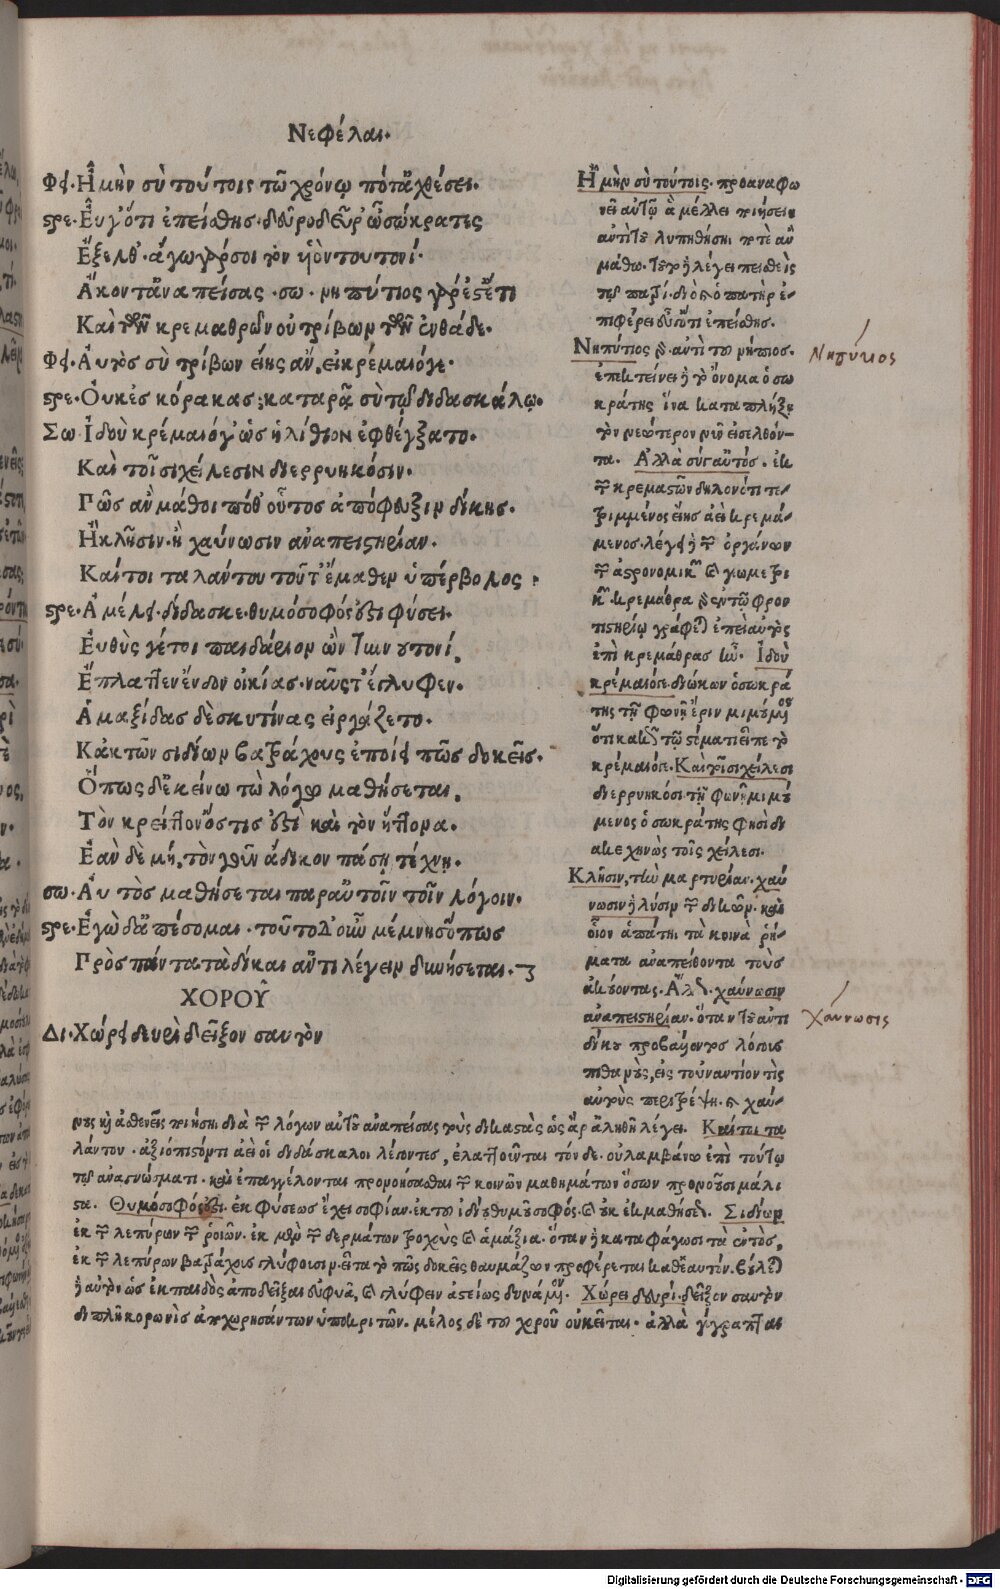 Νεφέλαι.
Φει. Ἦ μὴν σὺ τούτοις τῷ χρόνῳ ποτ' ἀχθέσει.
στρε. Εὖ γ' ὅτι ἐπείσθης. δεῦρο δεῦρ' ὦ σώκρατες
Ἔξελθ'. ἄγω γάρ σοι τὸν υἱὸν τουτονί.
Ἄκοντ' ἀναπείσας. σω. νηπύτιος γάρ ἐστ' ἔτι
Καὶ τῶν κρεμαθρῶν οὐ τρίβων τῶν ἐνθάδε.
Φει. Αὐτὸς σὺ τρίβων εἴης ἄν, εἰ κρέμαιό γε.
στρε. Οὐκ ἐς κόρακας; καταρᾷ σὺ τῷ διδασκάλῳ.
Σω Ἰδοὺ κρέμαιό γ' ὡς ἠλίθιον ἐφθέγξατο.
Καὶ τοῖσι χείλεσιν διερρυηκόσιν.
Πῶς ἂν μάθοι ποθ' οὗτος ἀπόφευξιν δίκης.
Ἢ κλῆσιν. ἢ χαύνωσιν ἀναπειστηρίαν.
Καίτοι ταλάντου τοῦτ' ἔμαθεν ὑπέρβολος
στρε. Ἀμέλει. δίδασκε. θυμόσοφός ἐστι φύσει.
Εὐθὺς γέ τοι παιδάριον ὢν τυννουτονί
Ἔπλαττεν ἔνδον οἰκίας. ναῦς τ' ἔγλυφεν.
Ἁμαξίδας δὲ σκυτίνας εἰργάζετο.
Κἀκ τῶν σιδίων βατράχους ἐποίει πῶς δοκεῖς.
Ὅπως δ' ἐκείνω τὼ λόγω μαθήσεται.
Τὸν κρείττον' ὅστις ἐστὶ καὶ τὸν ἥττονα.
Ἐὰν δὲ μή, τὸν γοῦν ἄδικον πάσῃ τέχνῃ.
σω. Αὐτὸς μαθήσεται παρ' αὐτοῖν τοῖν λόγοιν.
στρε. Ἐγὼ δ' ἀπέσομαι. τοῦτο δ' οὖν μέμνησ' ὅπως
Πρὸς πάντα τὰ δίκαι' ἀντιλέγειν δυνήσεται.
ΧΟΡΟΥ͂
Δι. Χώρει δευρὶ δεῖξον σαυτὸν
Ἦ μὴν σὺ τούτοις. προαναφω
νεῖ αὐτῷ ἃ μέλλει ποιήσειν
ἀντὶ τοῦ λυπηθήσῃ ποτὲ ἂν
μάθω. τοῦτο δὲ λέγει πεισθεὶς
τῷ πατρί. διὸ καὶ ὁ πατὴρ ἐ-
πιφέρει εὖ ὅτι ἐπείσθης.
Νηπύτιος δὲ. ἀντὶ τοῦ νήπιος.
ἐπεκτείνει δὲ τὸ ὄνομα ὁ σω
κράτης ἵνα καταπλήξῃ
τὸν νεώτερον νῦν εἰσελθόν-
τα. Ἀλλὰ σύ γ' αὐτός. ἐκ
τῶν κρεμαστῶν δηλονότι τε-
τριμμένος εἴης ἀεὶ κρεμά-
μενος. λέγει δὲ τῶν ὀργάνων
τῶν ἀστρονομικῶν καὶ γεωμετρι
κῶν. κρεμάθρα δὲ ἐν τῷ φρον
τιστηρίῳ γράφεται ἐπεὶ αὐτὸς
ἐπὶ κρεμάθρας ἦν. Ἰδοὺ
κρέμαιό γε. διώκων ὁ σωκρά
της τῇ φωνῇ ἔριν μιμούμενος
ὅτι κακῶς τῷ στόματι εἶπε τὸ
κρέμαιό γε. Καὶ τοῖσι χείλεσι
διερρυηκόσι τῇ φωνῇ μιμού
μενος ὁ σωκράτης φησὶ δι
ακεχηνὼς τοῖς χείλεσι.
Κλῆσιν, τὴν μαρτυρίαν. χαύ
νωσιν ἢ λύσιν τῶν δικῶν. καὶ
οἷον ἀπάτῃ τὰ κοινὰ ῥή-
ματα ἀναπείθοντα τοὺς
ἀκούοντας. Ἄλλως. χαύνωσιν
ἀναπειστηρίαν. ὅταν τοῦ ἀντι
δίκου προβάλλοντος λόγους
πιθανούς, εἰς τοὐναντίον τις
αὐτοὺς περιτρέψῃ. καὶ χαύ-
νους καὶ ἀσθενεῖς ποιήσῃ διὰ τῶν λόγων αὐτοῦ ἀναπείσας τοὺς δικαστὰς ὡς ἄρ' ἀληθῆ λέγει. Καίτοι τα
λάντου. ἀξιοπιστόν τι ἀεὶ οἱ διδάσκαλοι λέγοντες, ἐλαττοῦνται τόνδε. οὐ λαμβάνω ἐπὶ τούτῳ
τῷ ἀναγνώσματι. καὶ ἐπαγγέλονται προνοήσασθαι τῶν κοινῶν μαθημάτων ὅσων προνοοῦσι μάλι
στα. Θυμόσοφός ἐστι. ἐκ φύσεως ἔχει σοφίαν. ἐκ τοῦ ἰδίου θυμοῦ σοφός. καὶ οὐκ ἐκ μαθήσεως. Σιδίων
ἐκ τῶν λεπύρων τῶν ῥοιῶν. ἐκ μὲν τῶν δερμάτων τροχοὺς καὶ ἁμάξια. ὅταν δὲ καταφάγωσι τὰ ἐντός,
ἐκ τῶν λεπύρων βατράχους γλύφουσιν. εἶτα τὸ πῶς δοκεῖς θαυμάζων προφέρεται καθ' ἑαυτόν. βούλεται
δὲ αὐτὸν ὡς ἐκ παιδὸς ἀποδεῖξαι εὐφυᾶ, καὶ γλύφειν ἀστείως δυνάμενον. Χώρει δευρί. δεῖξον σαυτὸν
διπλῆ κορωνὶς ἀποχωρησάντων ὑποκριτῶν. μέλος δὲ τοῦ χοροῦ οὐ κεῖται. ἀλλὰ γέγραπται
Νηπύτιος
Χαύνωσις
Digitalisierung gefördert durch die Deutsche Forschungsgemeinschaft - DFG